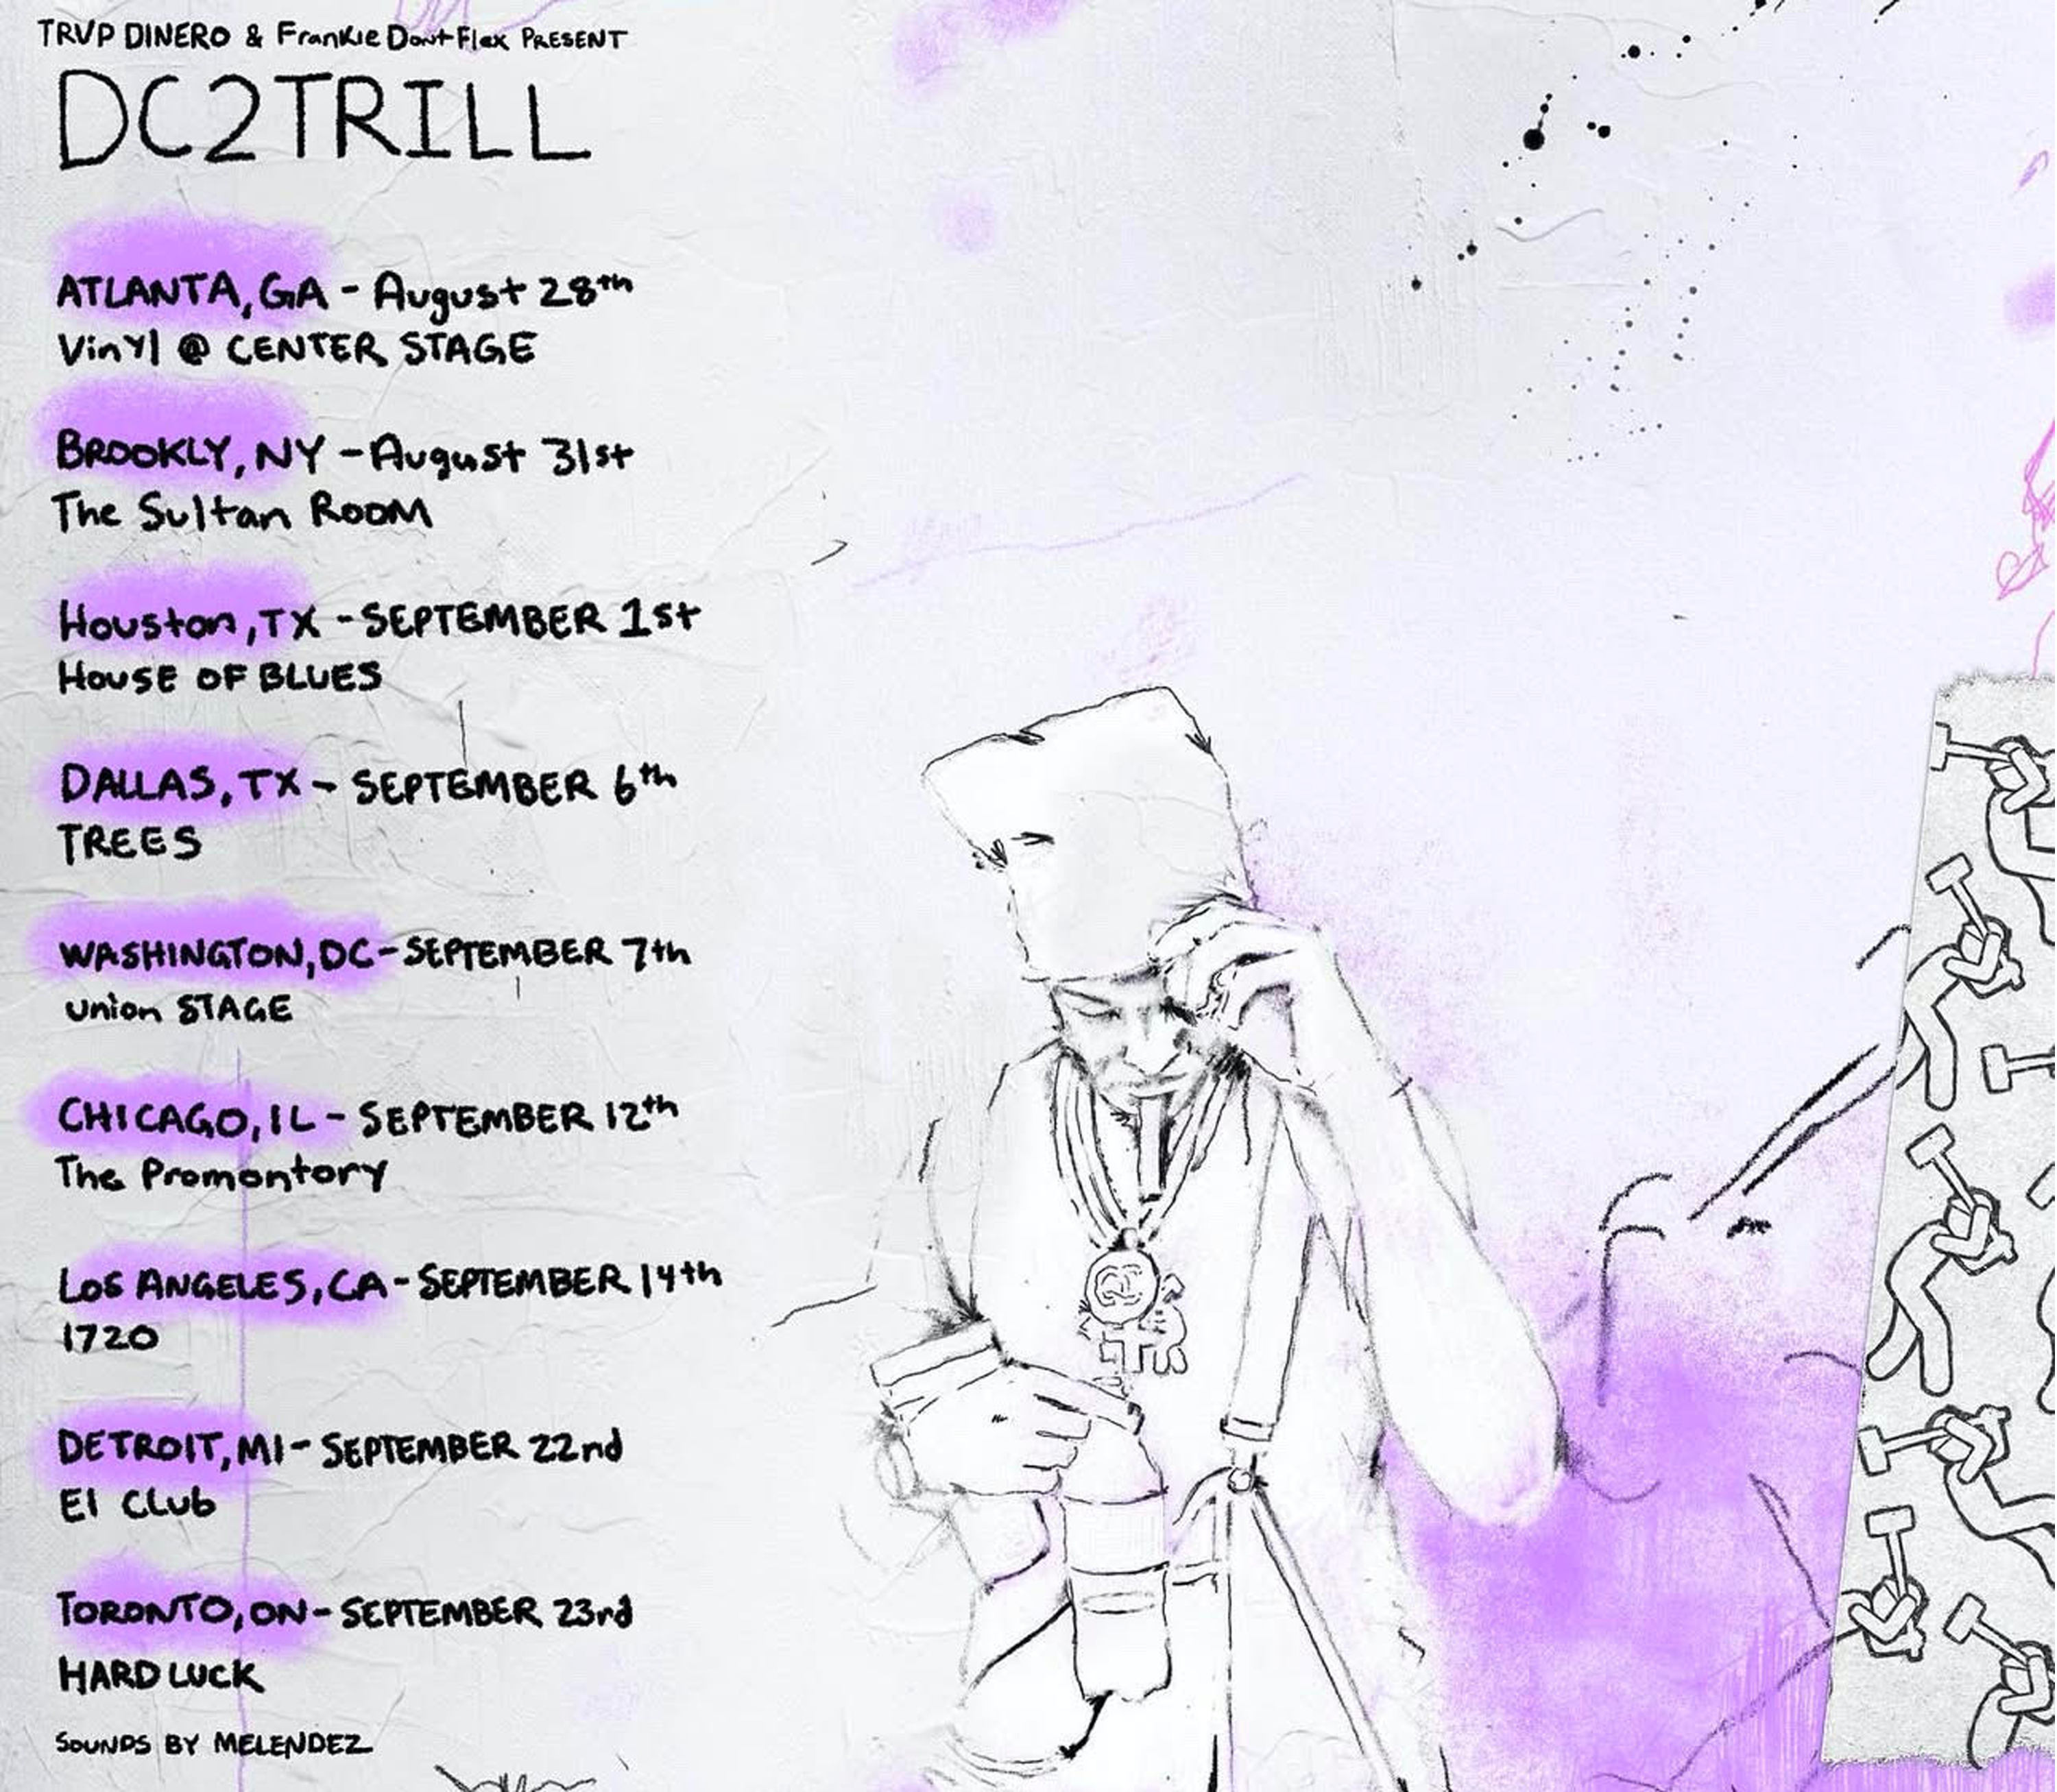 TRVP DINERO & Frankie Dont Flex PRESENT
DC2TRILL
ATLANTA, GA - August 28th
Vinyl @ CENTER STAGE
BROOKLY, NY - August 31st
The Sultan Room
Houston, TX - SEPTEMBER 1st
House OF BLUES
DALLAS, TX - SEPTEMBER 6th
TREES
WASHINGTON, DC - SEPTEMBER 7th
Union STAGE
CHICAGO, IL - SEPTEMBER 12th
The Promontory
Los ANGELES, CA - SEPTEMBER 14th
1720
DETROIT, MI - SEPTEMBER 22nd
El Club
TORONTO, ON - SEPTEMBER 23rd
HARD LUCK
SOUNDS BY MELENDEZ